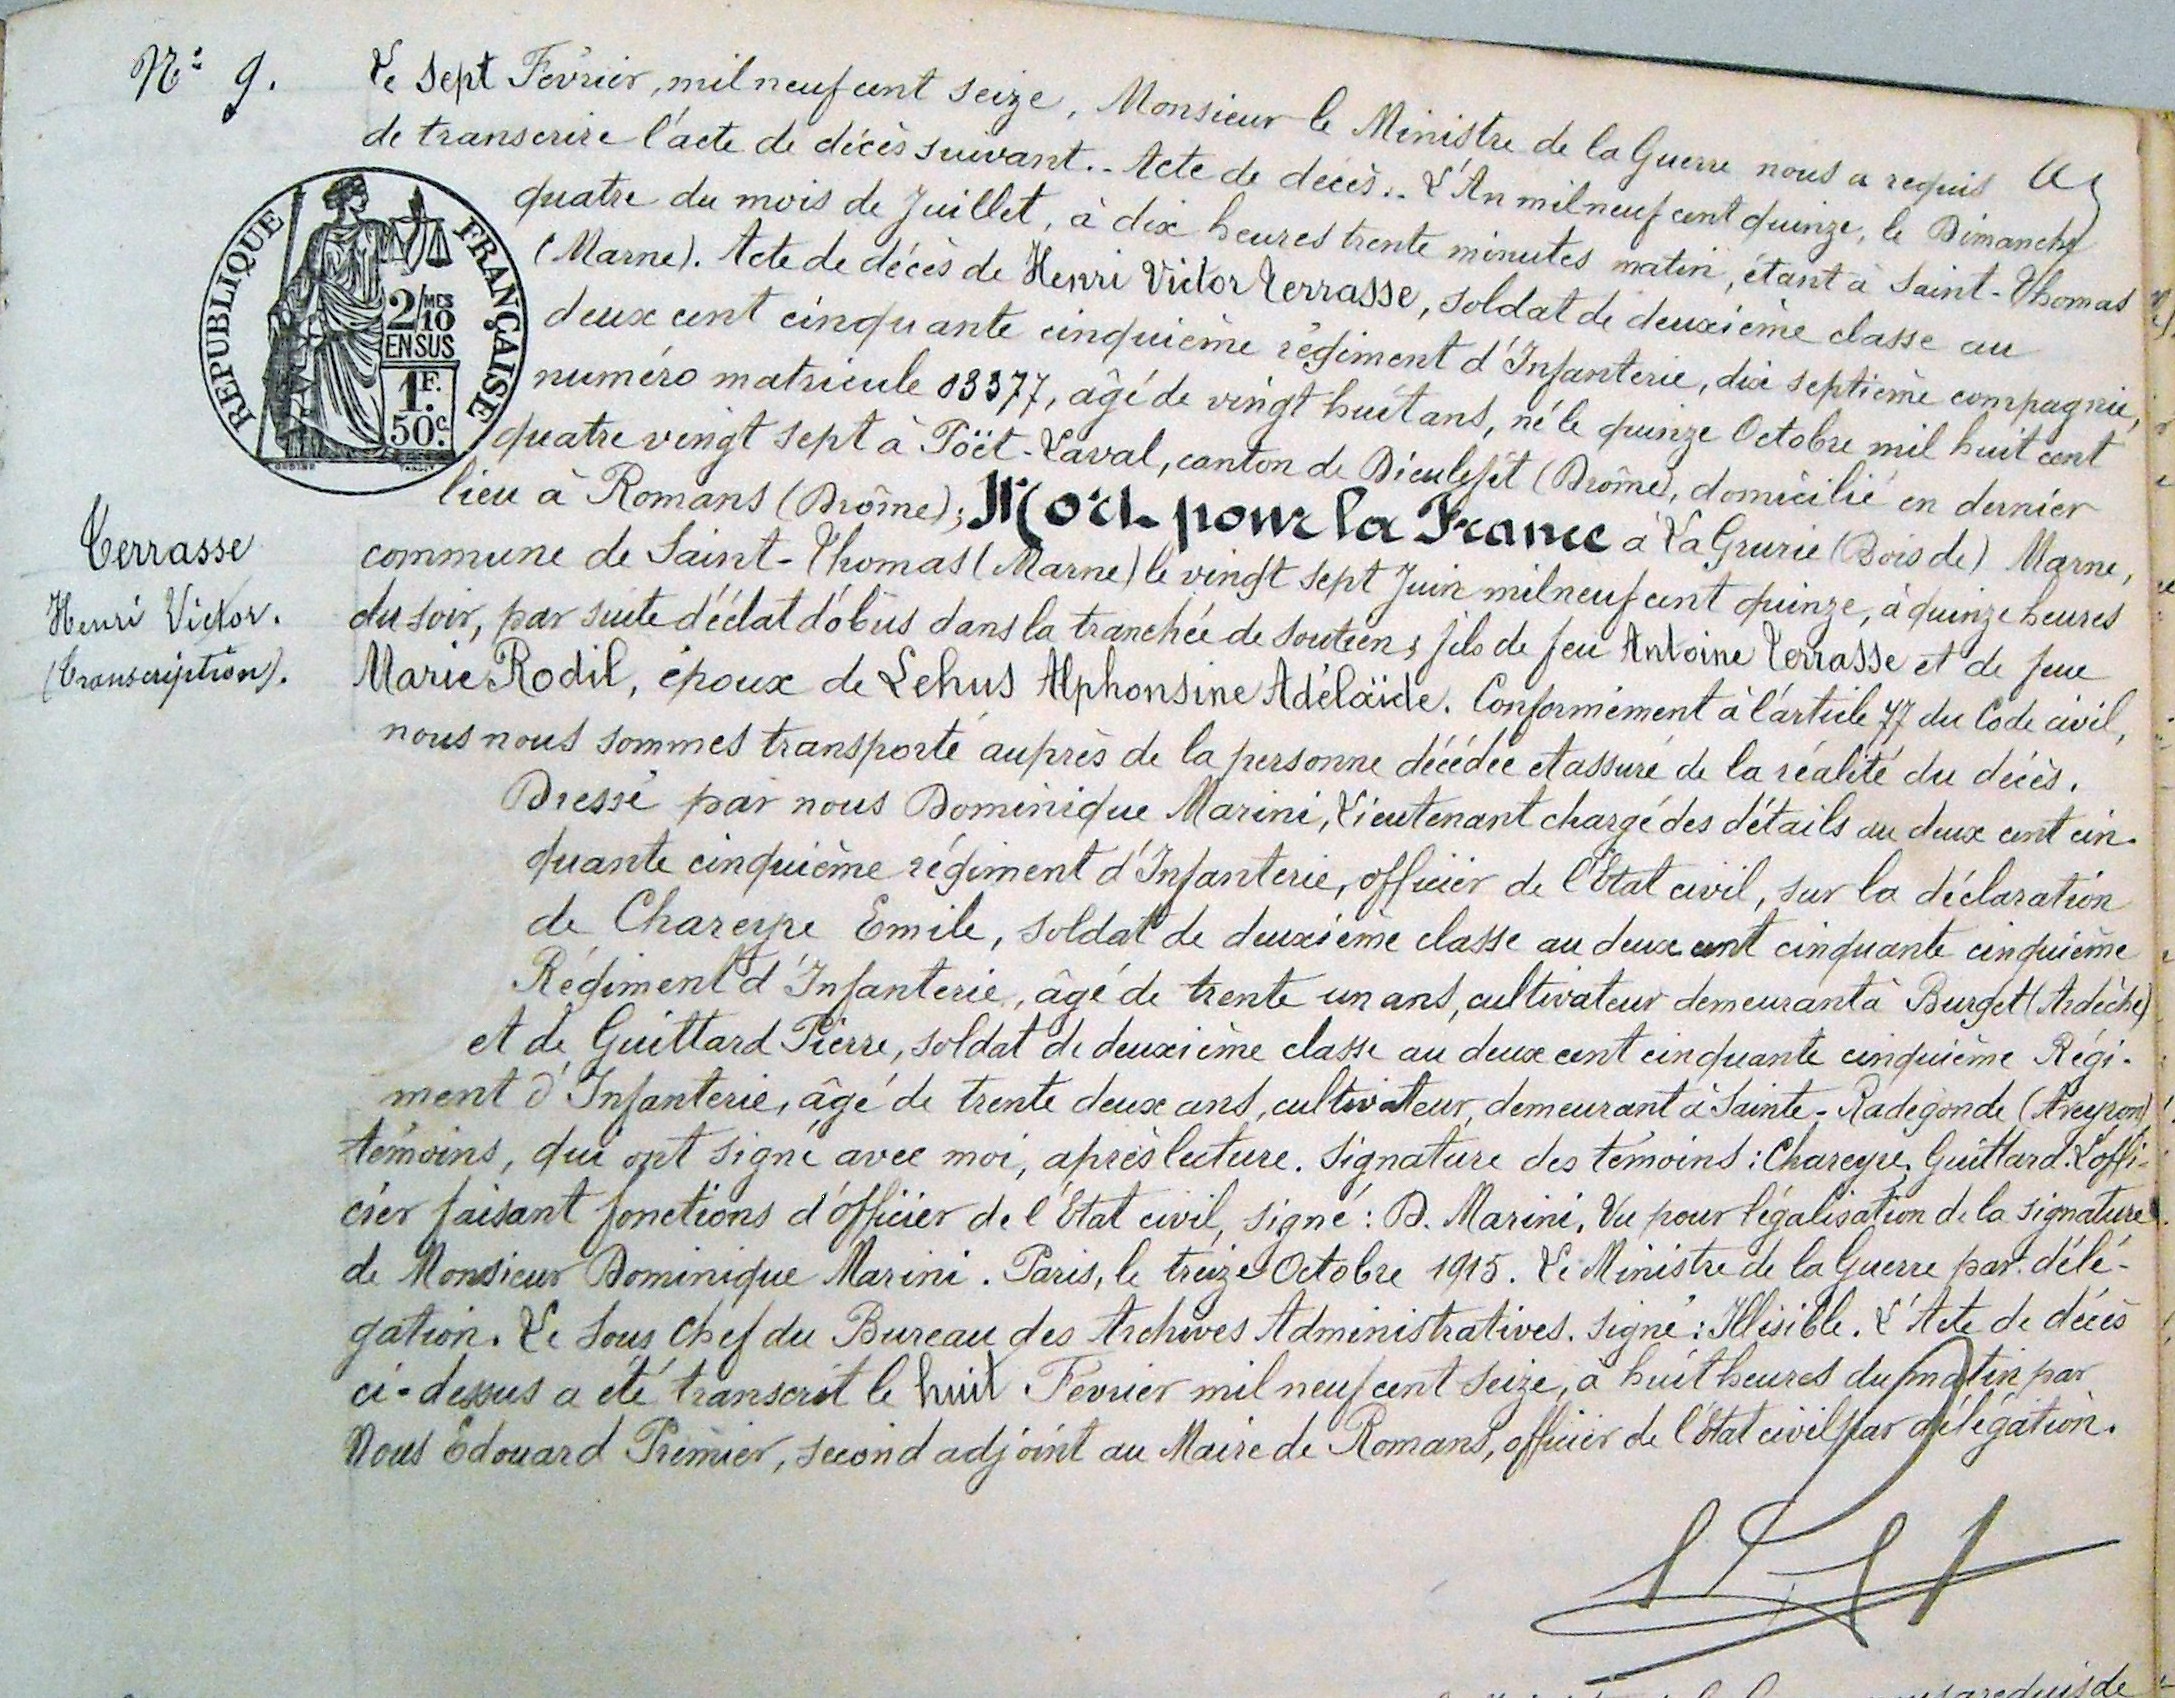 N° 9.
Le sept Février, mil neuf cent seize, Monsieur le Ministre de la Guerre nous a requis
de transcrire l'acte de décès suivant.. Acte de décès.. L'An mil neuf cent quinze, le Dimanche
quatre du mois de Juillet, à dix heures trente minutes matin, étant à Saint-Thomas
(Marne). Acte de décès de Henri Victor Terrasse, soldat de deuxième classe au
deux cent cinquante cinquième régiment d'Infanterie, dix septième compagnie,
numéro matricule 03377, âgé de vingt huit ans, né le quinze Octobre mil huit cent
quatre vingt sept à Poët-Laval, canton de Dieulefit (Drôme), domicilié en dernier
lieu à Romans (Drôme); Mort pour la France à La Grurie (Bois de) Marne,
commune de Saint-Thomas (Marne) le vingt sept Juin mil neuf cent quinze, à quinze heures
du soir, par suite d'éclat d'obus dans la tranchée de soutien; fils de feu Antoine Terrasse et de feue
Marie Rodil, époux de Lehus Alphonsine Adélaïde. Conformément à l'article 77 du Code civil,
nous nous sommes transporté auprès de la personne décédée et assuré de la réalité du décès.
Dressé par nous Dominique Marini, Lieutenant chargé des détails au deux cent cin-
quante cinquième régiment d'Infanterie, officier de l'Etat civil, sur la déclaration
de Chareyre Emile, soldat de deuxième classe au deux cent cinquante cinquième
Régiment d'Infanterie, âgé de trente un ans, cultivateur demeurant à Burget (Ardèche)
et de Guittard Pierre, soldat de deuxième classe au deux cent cinquante cinquième Régi-
ment d'Infanterie, âgé de trente deux ans, cultivateur, demeurant à Sainte-Radegonde (Aveyron)
témoins, qui ont signé avec moi, après lecture. Signature des témoins: Chareyre, Guittard. L'offi-
cier faisant fonctions d'officier de l'Etat civil, signé: D. Marini, Vu pour légalisation de la signature
de Monsieur Dominique Marini. Paris, le treize Octobre 1915. Le Ministre de la Guerre par délé-
gation. Le Sous Chef du Bureau des Archives Administratives. signé: Illisible. L'Acte de décès
ci-dessus a été transcrit le huit Février mil neuf cent seize, à huit heures du matin par
Nous Edouard Premier, second adjoint au Maire de Romans, officier de l'Etat civil par délégation.
REPUBLIQUE FRANÇAISE
2/MES
10
EN SUS
1F.
50c.
Terrasse
Henri Victor.
(Transcription).